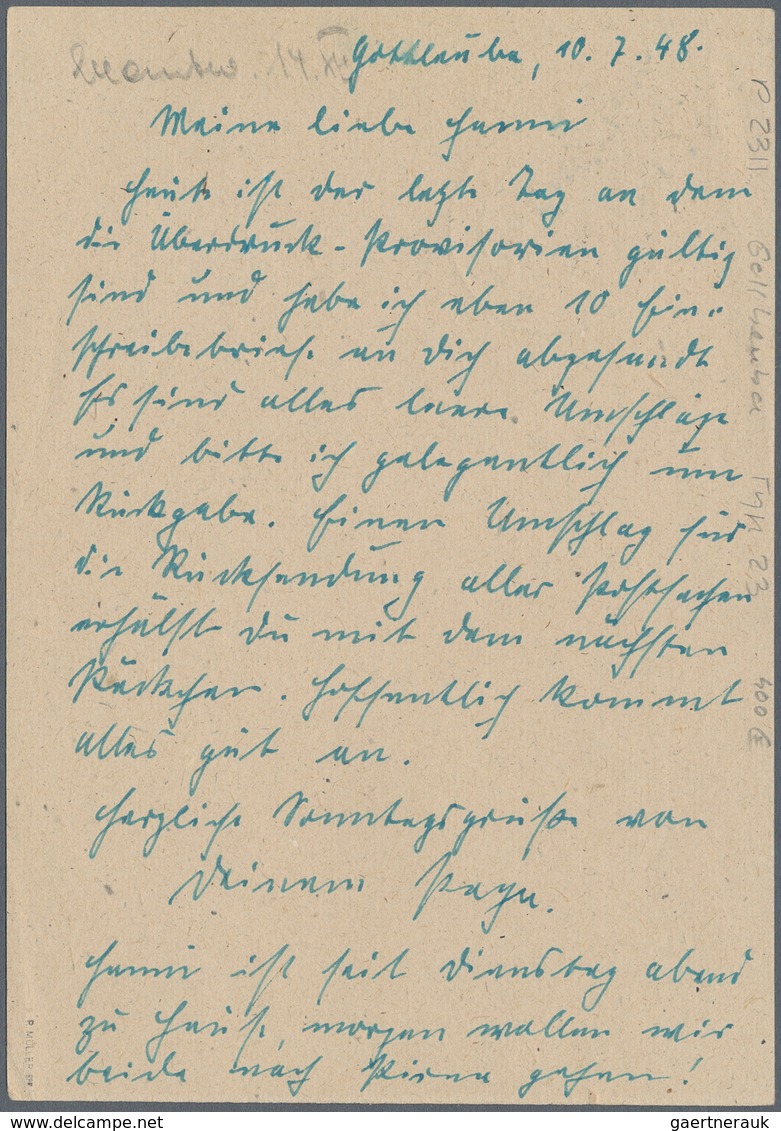 Gottleuba, 10.7.48.
Meine liebe Hanni
Heute ist der letzte Tag an dem
die Überdruck-Provisorien gültig
sind und habe ich eben 10 Ein-
schreibebriefe an Dich abgesandt
Es sind alles leere Umschläge
und bitte ich gelegentlich um
Rückgabe. Einen Umschlag für
die Rücksendung aller Postsachen
erhälst Du mit dem nächsten
Päckchen. Hoffentlich kommt
alles gut an.
Herzliche Sonntagsgrüße von
Deinem
ist seit Dienstag abend
zu Hause, morgen wollen wir
beide nach Pirna gehen!
P 2311
23
400
gaertnerauk